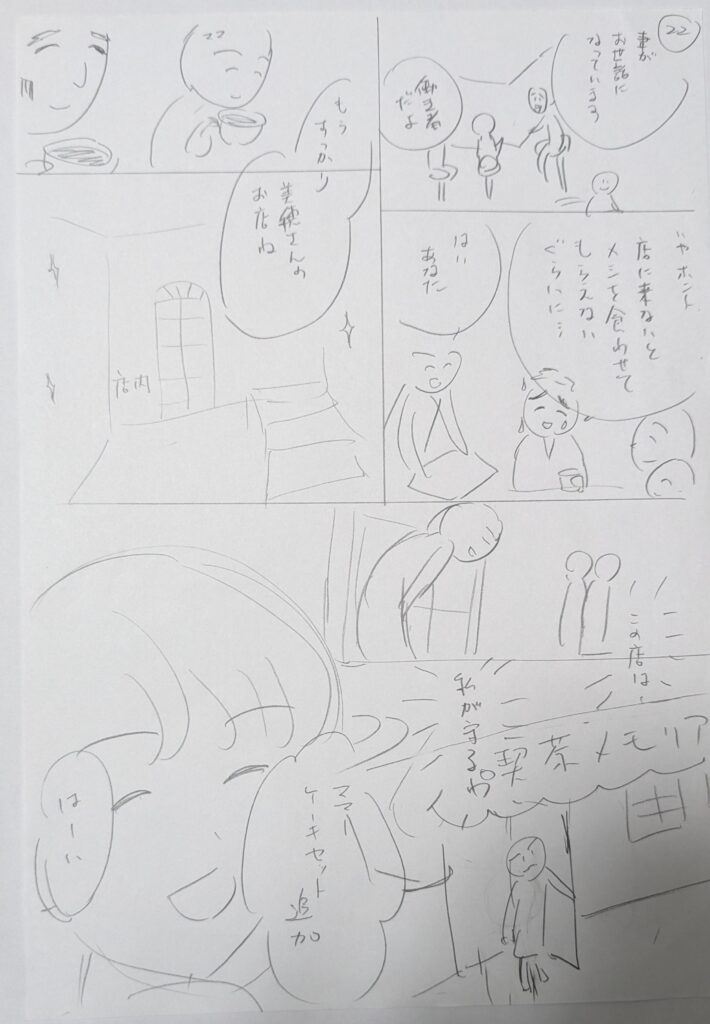 22
妻が
お世話に
なっているよ
働き者
だよ
もう
すっかり
美穂さんの
お店ね
いやホント
店に来ないと
メシを食わせて
もらえない
ぐらいに…
はい
あなた
店内
この店は
私が守るわ
喫茶メモリア
ママー
ケーキセット
追加
はーい